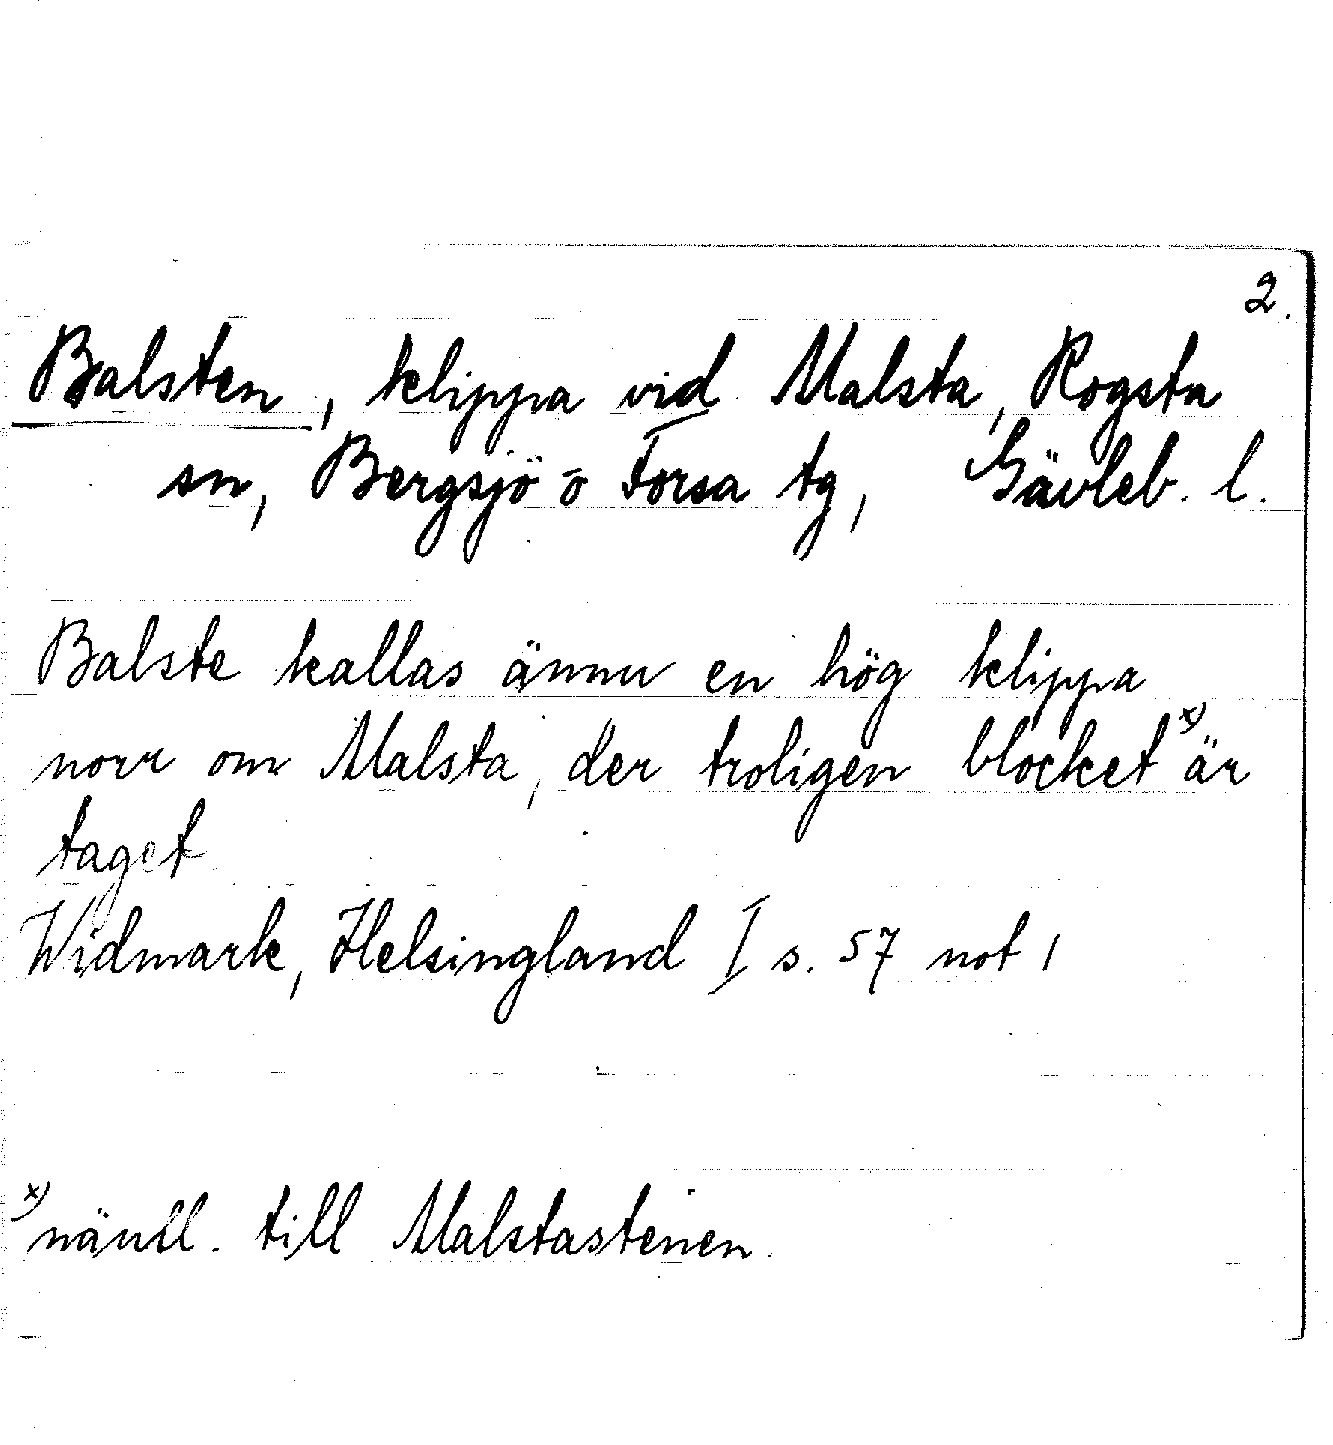 2.
Balsten, klippa vid Malsta, Rogsta
sn, Bergsjö o Forsa tg, Gävleb. l.
Balste kallas ännu en hög klippa
norr om Malsta, der troligen blocket x) är
taget
Widmark, Helsingland I s. 57 not 1
x) nämll. till Malstastenen.